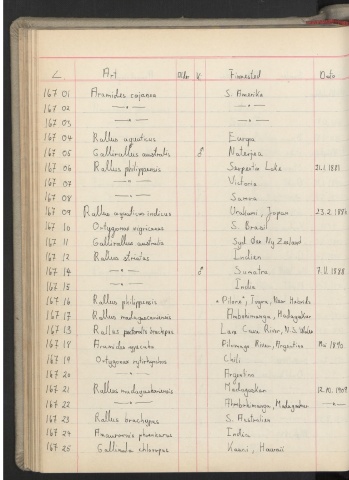 L. Art Alder K Finnested Dato
167 01 Aramides cajanea S. Amerika
167 02 —"— —"—
167 03 —"— —"—
167 04 Rallus aquaticus Europa
167 05 Gallirallus australis ♂
167 06 Rallus philippensis 1881
167 07 —"— Victoria
167 08 —"— Samoa
167 09 Rallus aquaticus indicus Urakami, Japan 23.2.
167 10 Ortygonax nigricans S. Brasil
167 11 Gallirallus australis Syd Øen Ny Zealand
167 12 Rallus striatus Indien
167 14 —"— ♂ Sumatra 7.11.1888
167 15 —"— India
167 16 Rallus philippensis
167 17 Rallus madagascariensis Ambohimanga, Madagaskar
167 13 Rallus pectoralis brachipus Lane Cove River, N.S. Wales
167 18 Aramides ypecaha River, Argentina Mai 1890
167 19 Ortygonax rytirhynchus Chili
167 20 —"— Argentina
167 21 Rallus madagascariensis Madagaskar 12.10.
167 22 —"— Ambohimanga, Madagaskar —"—
167 23 Rallus brachypus S. Australien
167 24 Amaurornis phoenicurus India
167 25 Gallinula chloropus Kauai, Hawaii